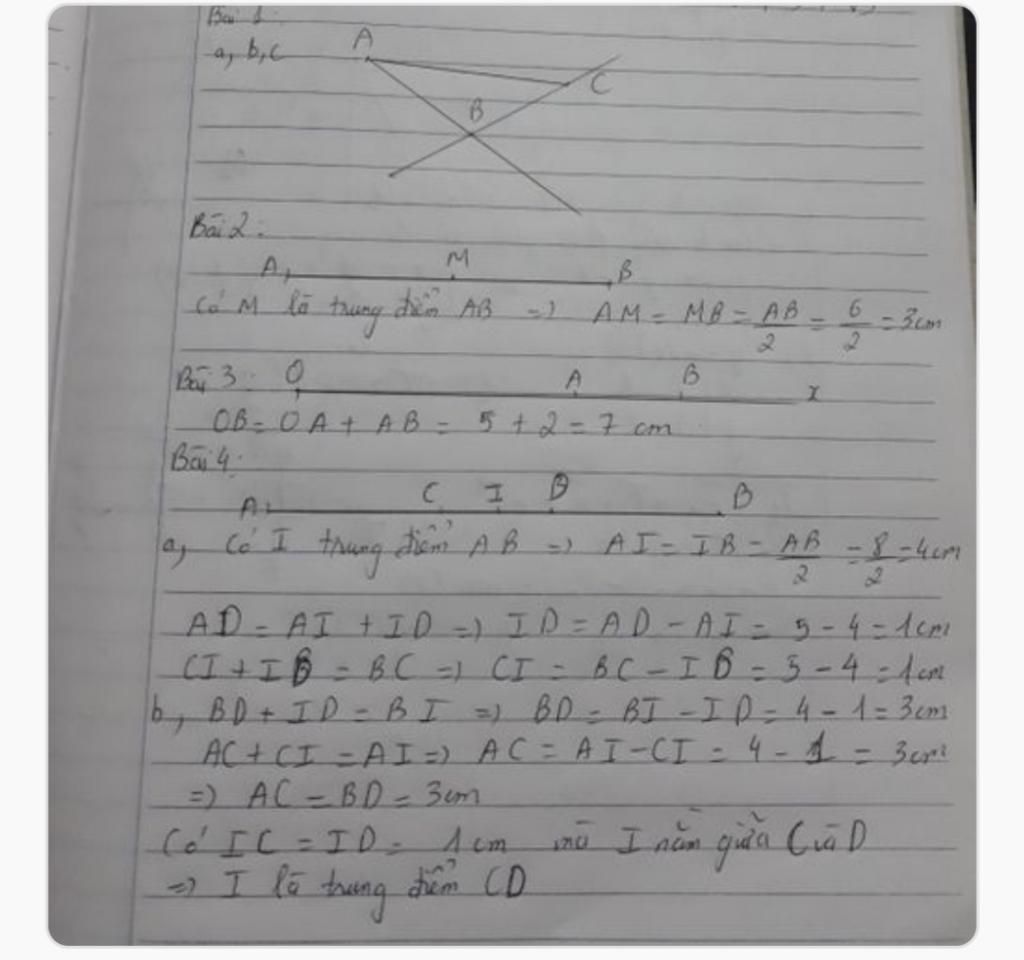 Bài 1
a, b, c
A
C
B
Bài 2:
A M B
Có M là trung điểm AB => AM = MB = AB/2 = 6/2 = 3cm
Bài 3: O A B x
OB = OA + AB = 5 + 2 = 7 cm
Bài 4:
A C I D B
a, Có I trung điểm AB => AI = IB = AB/2 = 8/2 = 4cm
AD = AI + ID => ID = AD - AI = 5 - 4 = 1cm
CI + IB = BC => CI = BC - IB = 5 - 4 = 1cm
b, BD + ID = BI => BD = BI - ID = 4 - 1 = 3cm
AC + CI = AI => AC = AI - CI = 4 - 1 = 3cm
=> AC = BD = 3cm
Có IC = ID = 1cm mà I nằm giữa C và D
=> I là trung điểm CD